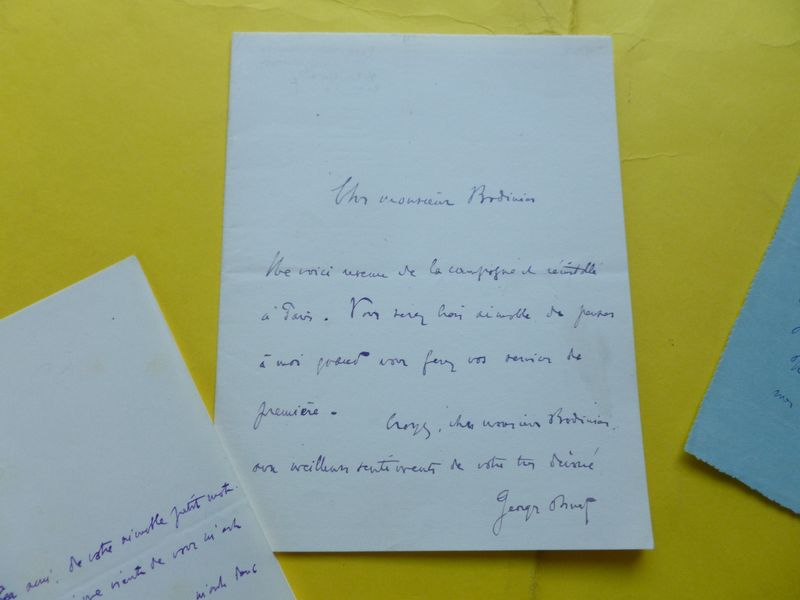 Cher monsieur Bodinier
Me voici revenu de la campagne et réinstallé
à Paris. Vous serez bien aimable de penser
à moi quand vous ferez vos services de
première.
Croyez, cher monsieur Bodinier,
aux meilleurs sentiments de votre très dévoué
Georges Ohnet
de votre aimable petit mot.
de vous m'a